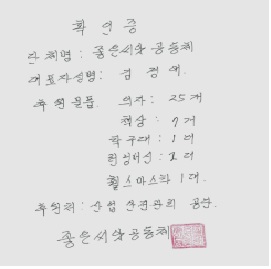 확인증
단체명 : 좋은씨앗 공동체
대표자성명 : 김 정 애.
후원물품. 의자 : 25개
책상 : 7개
탁구대 : 1대
런닝머신 : 1대
헬스마스타 1대.
후원처 : 산업 안전관리 공단.
좋은씨앗공동체